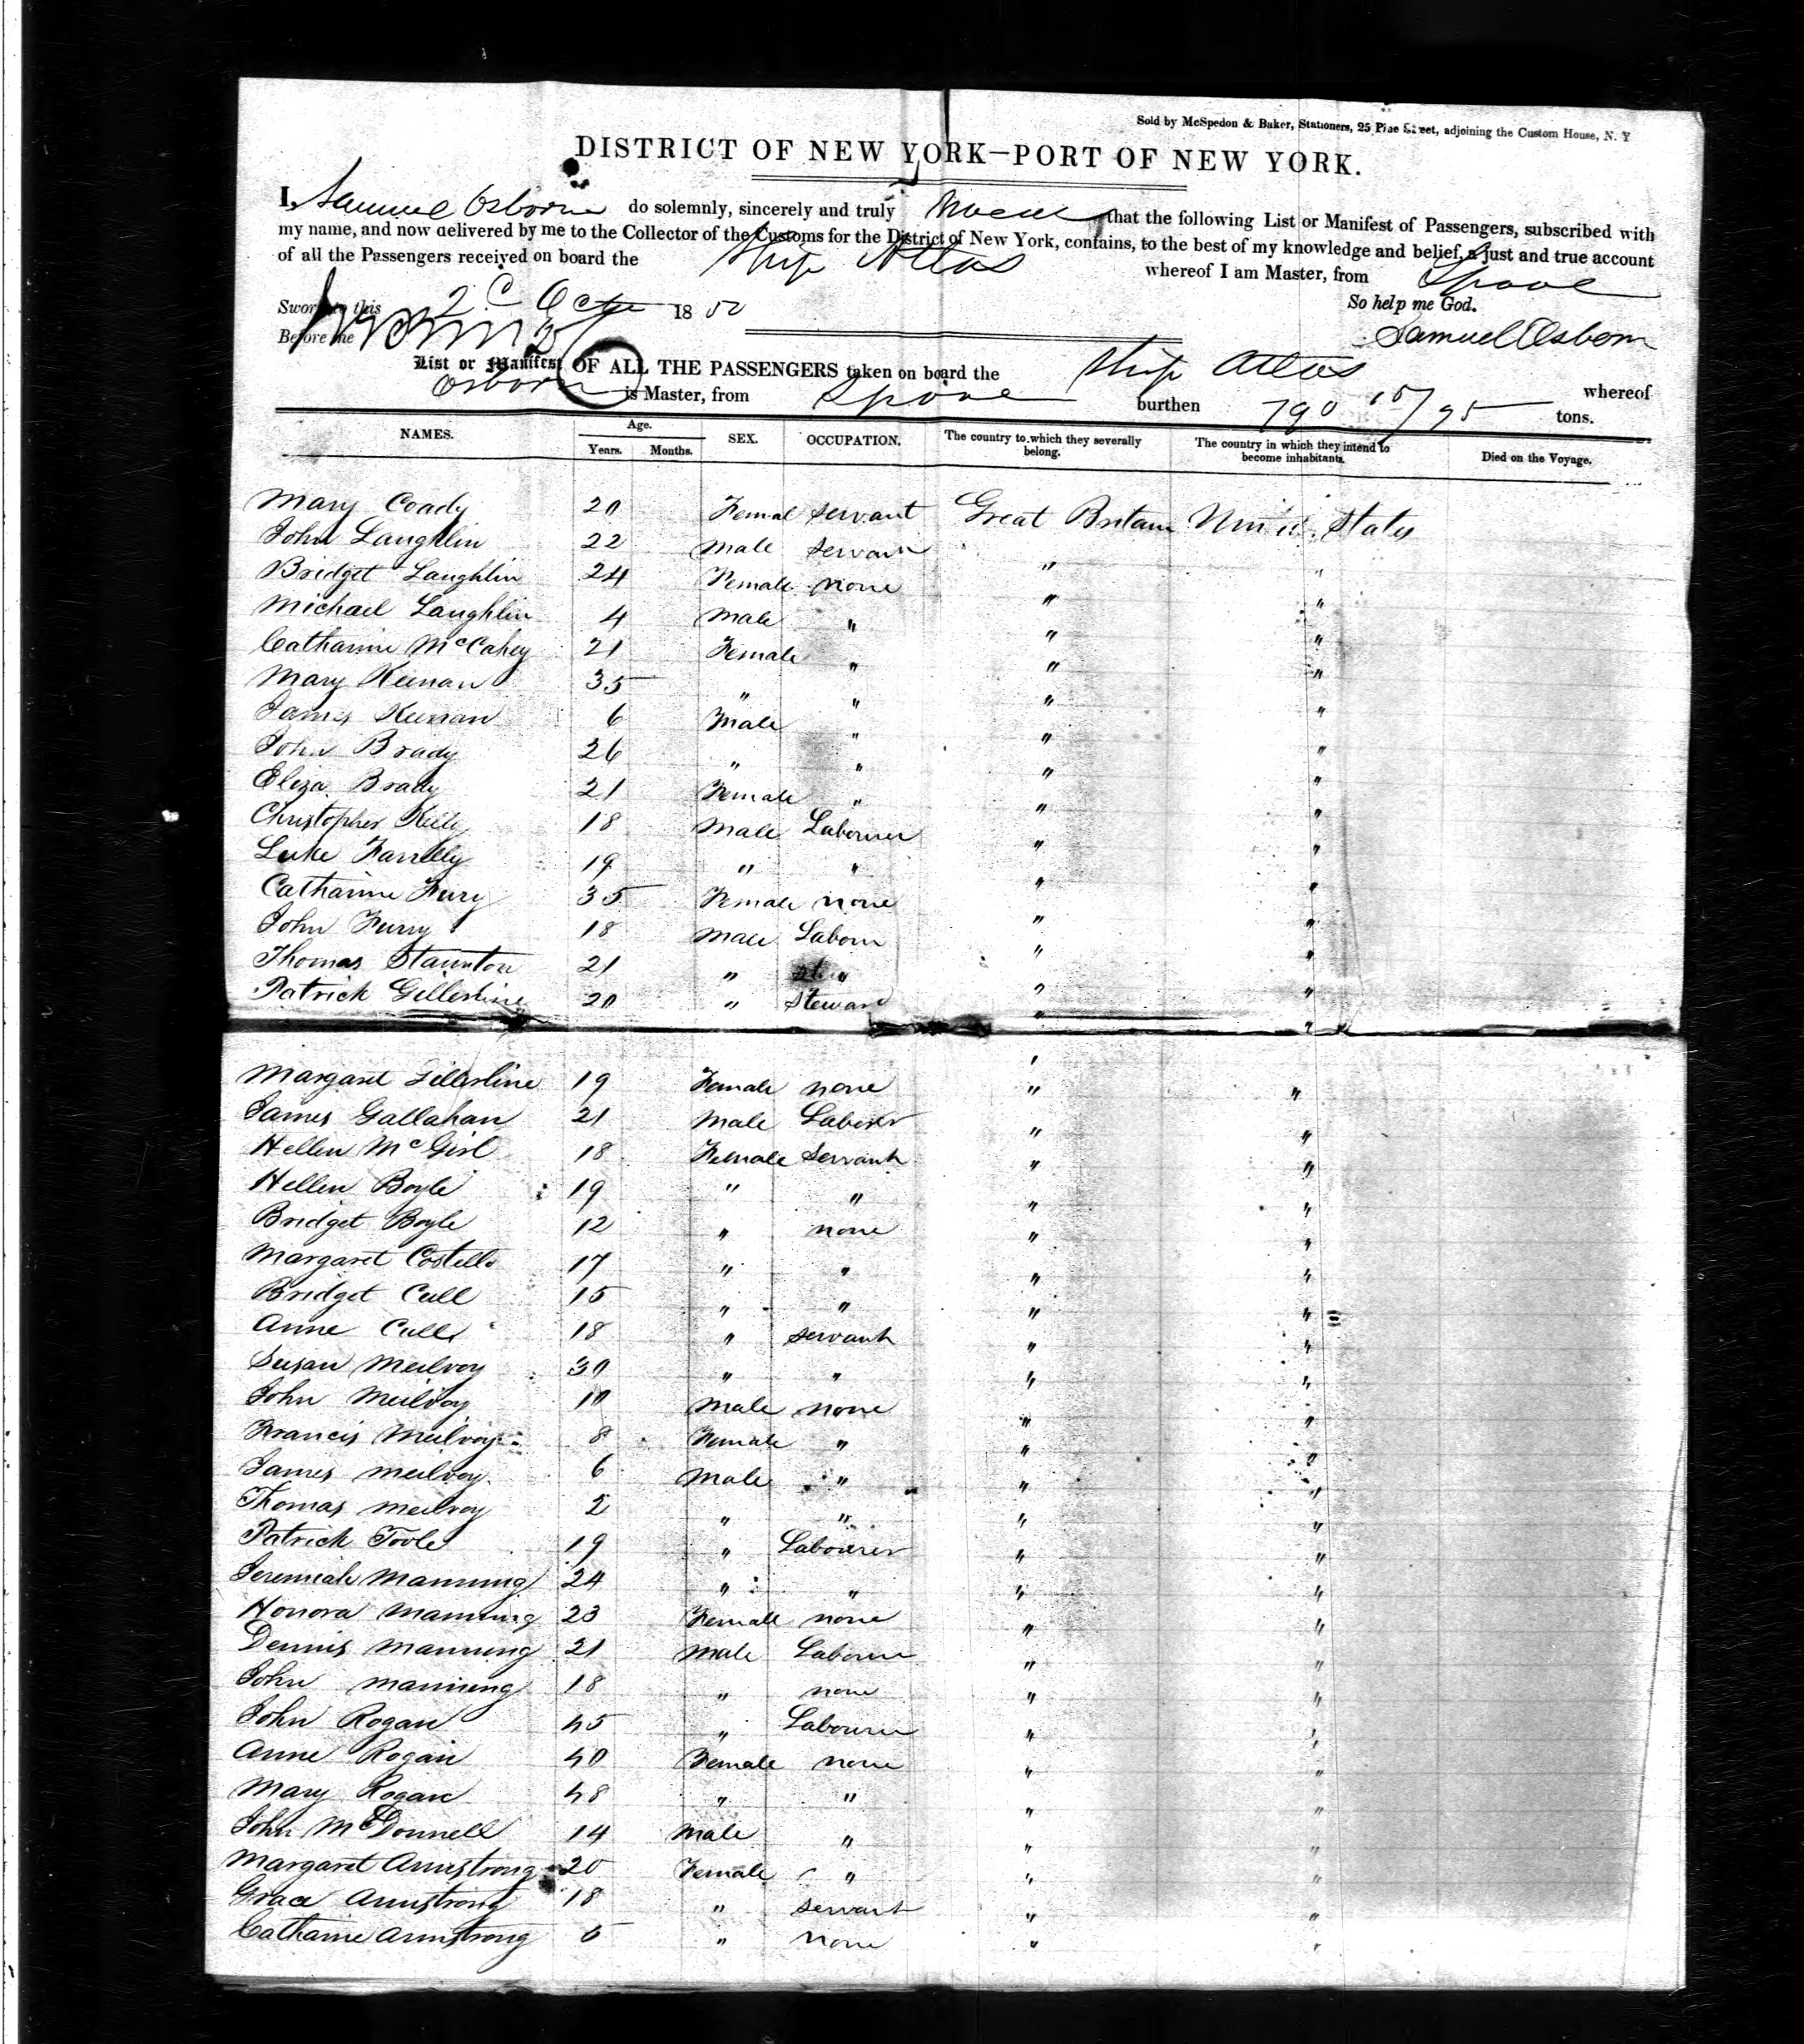 Sold by McSpedon & Baker, Stationers, 25 Pine Street, adjoining the Custom House, N. Y
DISTRICT OF NEW YORK—PORT OF NEW YORK.
I, Samuel Osborn do solemnly, sincerely and truly that the following List or Manifest of Passengers, subscribed with
my name, and now delivered by me to the Collector of the Customs for the District of New York, contains, to the best of my knowledge and belief, a just and true account
of all the Passengers received on board the Ship Atlas whereof I am Master, from Lpool
So help me God.
Sworn to this 2 Octr 1850
Before me
Samuel Osborn
List or Manifest OF ALL THE PASSENGERS taken on board the Ship Atlas whereof
Osborn is Master, from Lpool burthen 790 /95 tons.
NAMES. Age. Years. Months. SEX. OCCUPATION. The country to which they severally belong. The country in which they intend to become inhabitants. Died on the Voyage.
Mary Coady 20 Femal servant Great Britain United States
John Laughlin 22 male servant " "
Bridget Laughlin 24 Female none " "
Michael Laughlin 4 male " " "
Catharine McCahey 21 Female " " "
Mary Keenan 35 " " " "
James Keenan 6 male " " "
John Brady 26 " " " "
Eliza Brady 21 Female " " "
Christopher Kelly 18 male Labourer " "
Luke Farrelly 19 " " " "
Catharine Fury 35 Female none " "
John Furry 18 male Labour " "
Thomas Staunton 21 " " " "
Patrick Gillerline 20 " Steward " "
Margaret Gillerline 19 Female none " "
James Gallahan 21 male Laborer " "
Hellen McGirl 18 Female Servant " "
Hellen Boyle 19 " " " "
Bridget Boyle 12 " none " "
Margaret Costello 17 " " " "
Bridget Cull 15 " " " "
Anne Cull 18 " servant " "
Susan Meilvoy 30 " " " "
John Meilvoy 10 male none " "
Francis Meilvoy 8 Female " " "
James meilvoy 6 male " " "
Thomas meilvoy 2 " " " "
Patrick Toole 19 " Labourer " "
Jeremiah Manning 24 " " " "
Honora Manning 23 Female none " "
Dennis Manning 21 male Labourer " "
John Manning 18 " none " "
John Rogan 45 " Labourer " "
Anne Rogan 40 Female none " "
Mary Rogan 48 " " " "
John McDonnell 14 male " " "
Margaret Armstrong 20 Female " " "
Grace Armstrong 18 " servant " "
Catharine Armstrong 5 " none " "